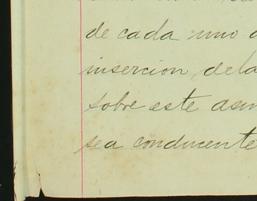 de cada uno
insercion, dela
sobre este asun
sea conducente